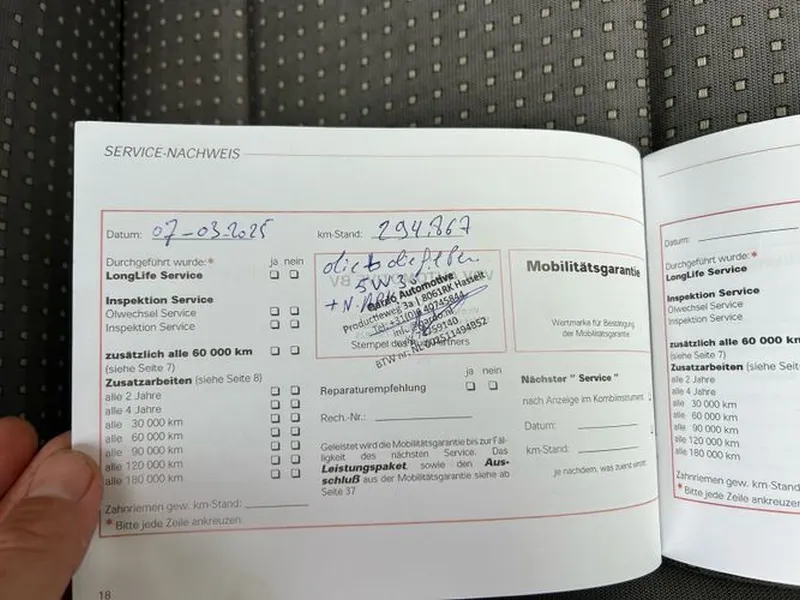 SERVICE-NACHWEIS
Datum: 07-03-2025
km-Stand: 294.867
Durchgeführt wurde:* ja nein
LongLife Service
Inspektion Service
Ölwechsel Service
Inspektion Service
zusätzlich alle 60 000 km
(siehe Seite 7)
Zusatzarbeiten (siehe Seite 8)
alle 2 Jahre
alle 4 Jahre
alle 30 000 km
alle 60 000 km
alle 90 000 km
alle 120 000 km
alle 180 000 km
Zahnriemen gew. km-Stand:
* Bitte jede Zeile ankreuzen
5W30
Automotive
Productieweg 3a | 8061RK Hasselt
Stempel des
BTW nr. NL
Reparaturempfehlung
ja nein
Rech.-Nr.:
Geleistet wird die Mobilitätsgarantie bis zur Fäl-
ligkeit des nächsten Service. Das
Leistungspaket, sowie den Aus-
schluß aus der Mobilitätsgarantie siehe ab
Seite 37
Mobilitätsgarantie
Wertmarke für Bestätigung
der Mobilitätsgarantie
Nächster " Service "
nach Anzeige im Kombiinstrument
Datum:
km-Stand:
je nachdem, was zuerst eintritt
18
Datum:
Durchgeführt wurde:*
LongLife Service
Inspektion Service
Ölwechsel Service
Inspektion Service
zusätzlich alle 60 000 km
(siehe Seite 7)
Zusatzarbeiten (siehe Seit
alle 2 Jahre
alle 4 Jahre
alle 30 000 km
alle 60 000 km
alle 90 000 km
alle 120 000 km
alle 180 000 km
Zahnriemen gew. km-Stand
* Bitte jede Zeile ankreuzen